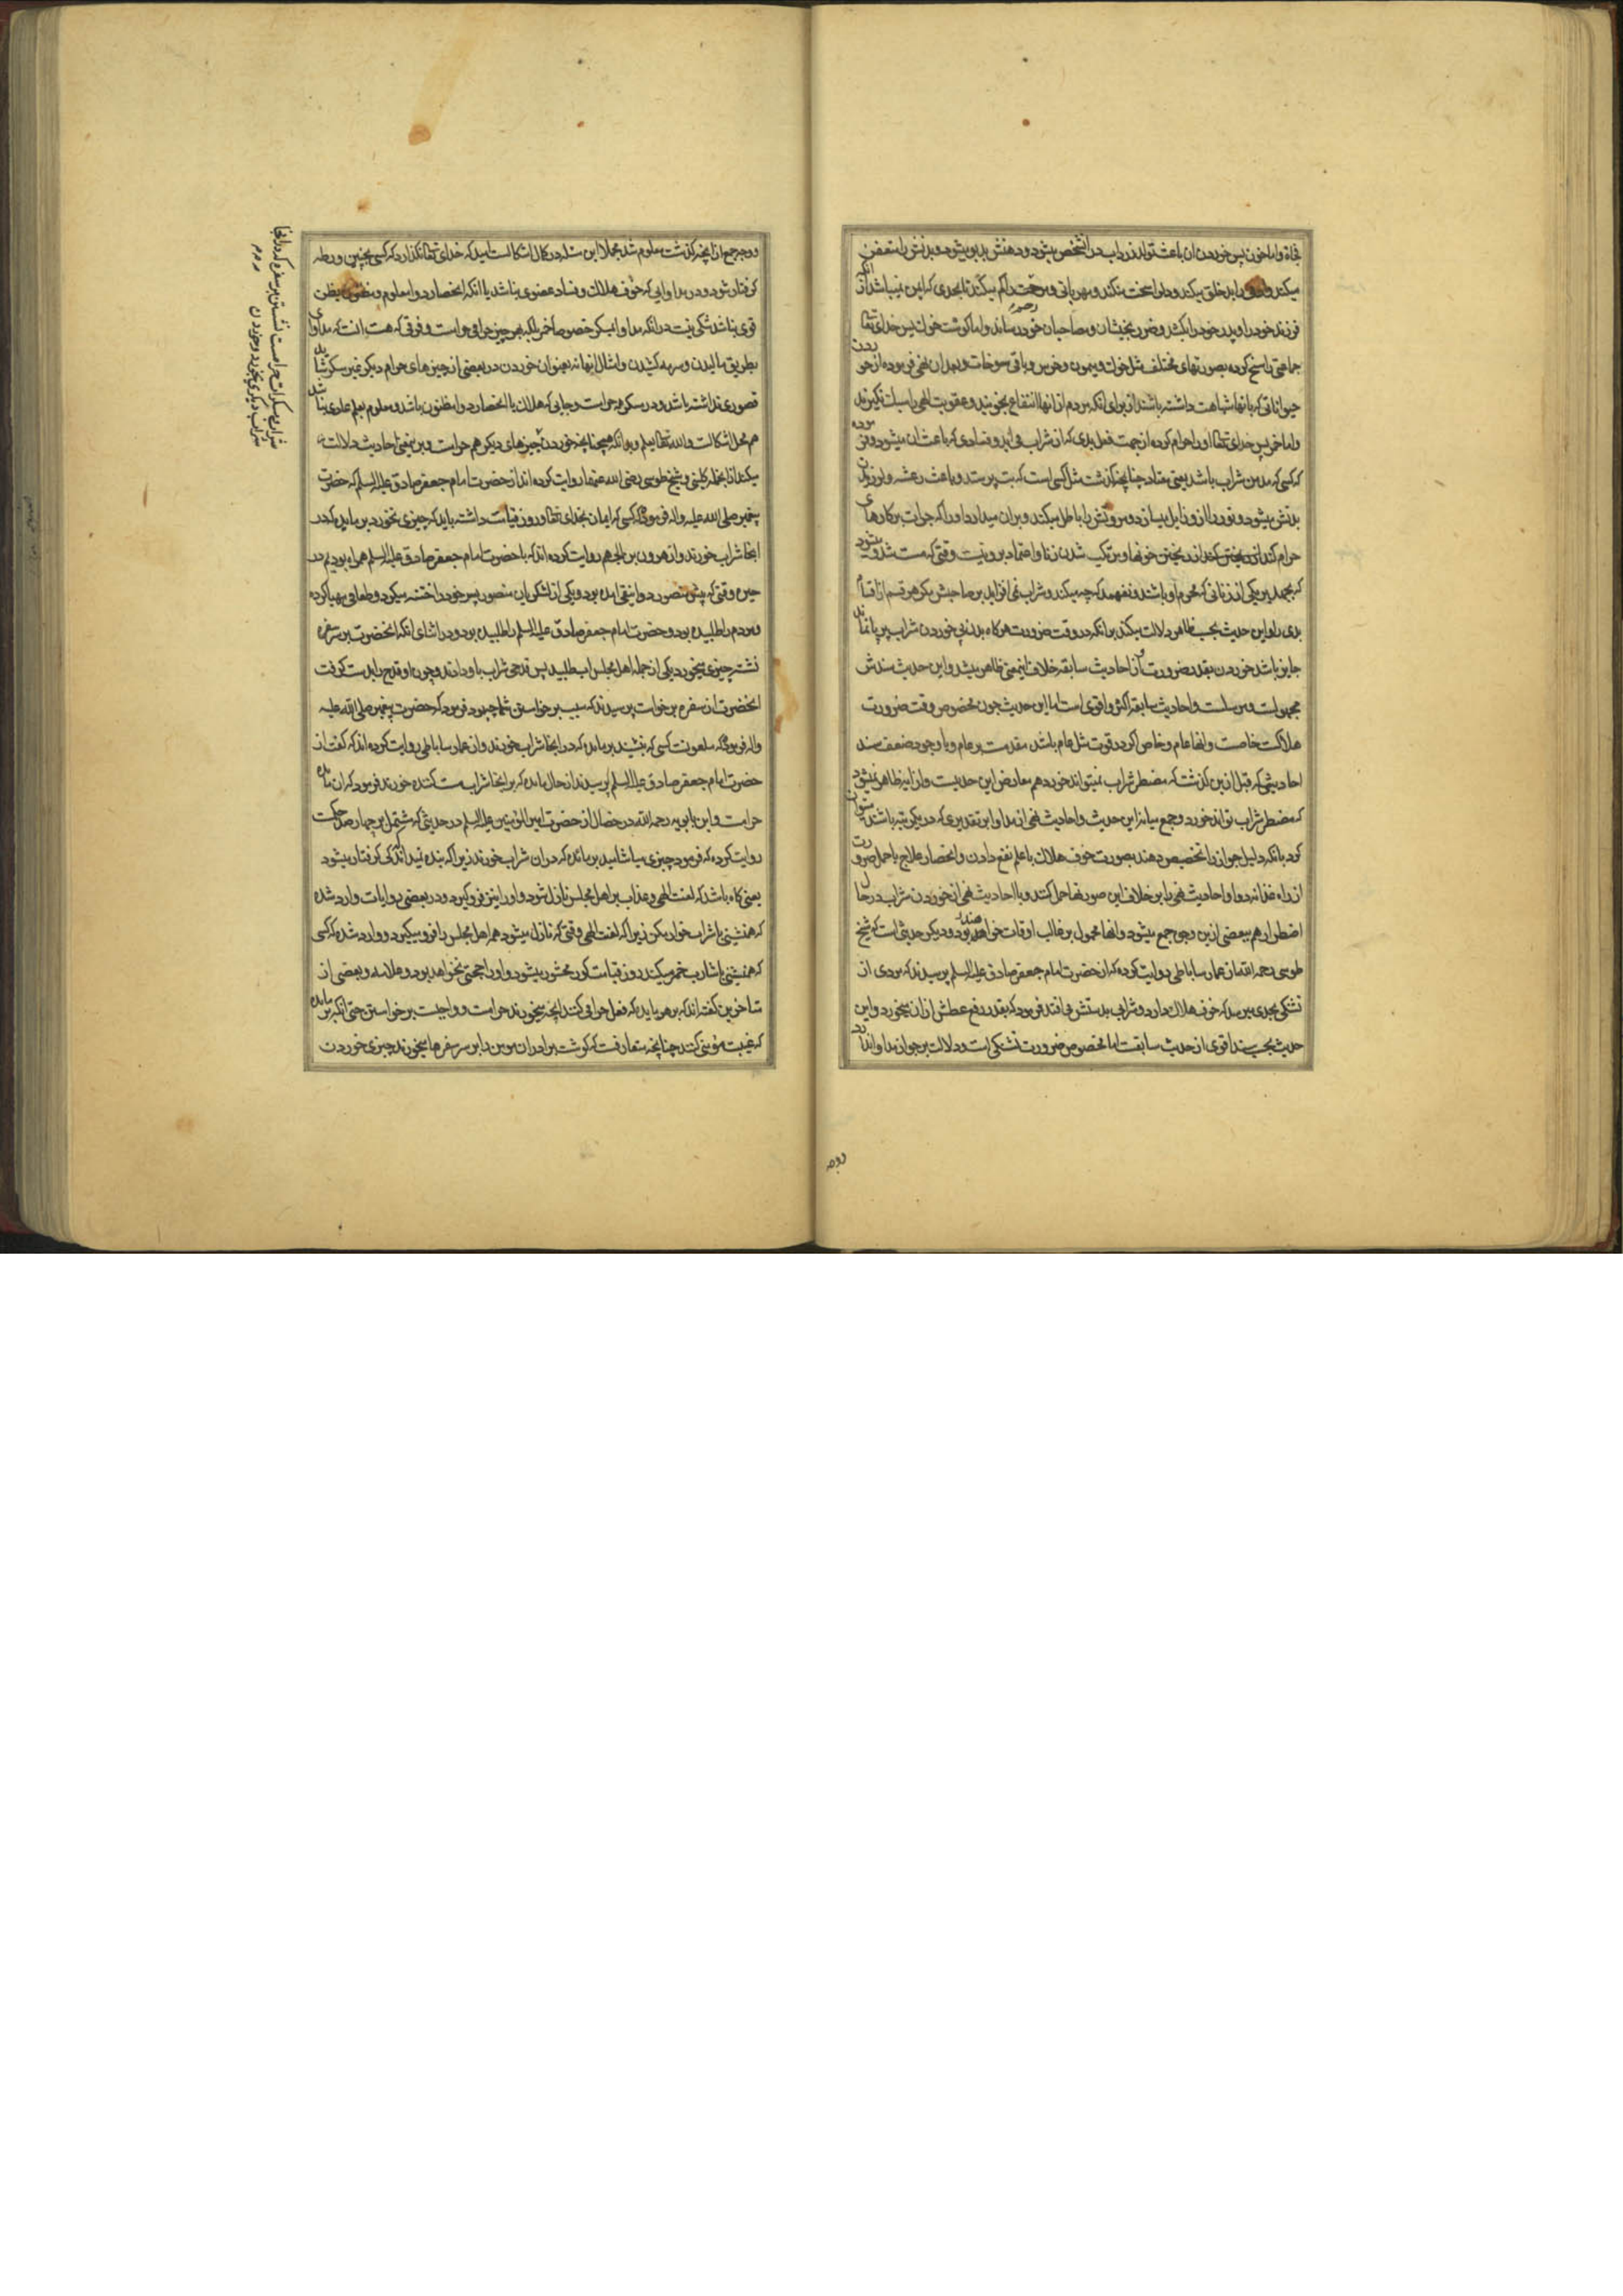 میکند و او را بد خلق میکند و دل را سخت میکند و مهربانی و مرحمت را کم میکند تا بحدی که ایمن نیست از آنکه
فرزند خود را و پدر خود را بکشد و ضرر بخویشان و مصاحبان خود رساند و اما گوشت خوک پس خدای تعالی
جماعتی را مسخ کرده بصورتهای مختلف مثل خوک و میمون و خرس و باقی مسوخات و بعد از ان نهی فرموده از خوردن
حیواناتی که بآنها شباهت داشته باشند از برای آنکه مردم از آنها انتفاع نجویند و عقوبت الهی را سبک نگیرند
و اما خمر پس خدای تعالی او را حرام کرده از جهت فعل بدی که از شراب می آید و فسادی که باعث آن میشود و فرموده
که کسی که مدمن شراب باشد یعنی معتاد چنانچه گذشت مثل کسی است که بت پرستد و باعث رعشه و لرزیدن
بدنش میشود و نور را از و زایل میسازد و مروتش را باطل میکند و بر آن میدارد او را که جرأت بر کارهای
حرام کند از ریختن خونها و مرتکب شدن زنا و اعتماد برو نیست وقتی که مست شد و میشود
بدی را و این حدیث بحسب ظاهر دلالت میکند بر آنکه در وقت ضرورت هرگاه بدنی بی خوردن شراب بر پا نماند
جایز باشد خوردن بقدر ضرورت و از احادیث سابقه خلاف اینمعنی ظاهر میشد و این حدیث سندش
مجهولست و مرسلست و احادیث سابقه اکثر و اقوی است اما این حدیث چون مخصوص وقت ضرورت
هلاکست خاصست و آنها عام و خاص اگر در قوت مثل عام باشد مقدمست بر عام و با وجود ضعف سند
احادیثی که قبل ازین گذشت که مضطر شراب نمیتواند خورد هم معارض این حدیث است و از آیه ظاهر میشود
که مضطر شراب تواند خورد و جمع میانه این حدیث و احادیث نهی از مداوا بر تقدیری که در یک رتبه باشند میتوان
کرد بآنکه دلیل جواز را تخصیص دهند بصورت خوف هلاک با علم نفع دادن و انحصار علاج یا حمل ضرورت
از راه غذا نه دوا و احادیث نهی را بر خلاف این صورتها حمل کنند و یا احادیث نهی از خوردن شراب در حال
اضطرار هم ببعضی ازین وجوه جمع میشود و آنها محمول بر غالب اوقات خواهند بود و دیگر حدیثی است که شیخ
طوسی رحمه الله از عمار ساباطی روایت کرده که از حضرت امام جعفر صادق علیه السلم پرسیدند که مردی از
تشنگی بحدی میرسد که خوف هلاک دارد و شرابی بدستش می افتد فرمود که بقدر رفع عطش از آن بخورد و این
حدیث بحسب سند اقوی از حدیث سابقست اما مخصوص ضرورت تشنگی است و دلالت بر جواز مداوا ندارد
ووجه
و وجه جمع از آنچه گذشت معلوم شد مجملا این مسئله در کمال اشکالست امید که خدای تعالی نگذارد که کسی بچنین ورطه
گرفتار شود و در مداوایی که خوف هلاک و فساد عضوی نباشد یا آنکه انحصار دوا معلوم و مظنون بظن
قوی نباشد شکی نیست در آنکه مداوا بمسکر خصوصا خمر بلکه بهر چیز حرامی حرامست و فرقی که هست آنست که مداوای
بطریق مالیدن و سرمه کشیدن و امثال اینها نه بعنوان خوردن در بعضی از چیزهای حرام دیگر بغیر مسکر شاید
قصوری نداشته باشد و در مسکر حرامست و جایی که هلاک یا انحصار دوا مظنون باشد و معلوم بعلم عادی نباشد
هم محل اشکالست و الله تعالی یعلم و بدانکه همچنانچه خوردن چیزهای دیگر هم حرامست و برین معنی احادیث دلالت
میکند از انجمله کلینی و شیخ طوسی رضی الله عنهما روایت کرده اند از حضرت امام جعفر صادق علیه السلم که حضرت
پیغمبر صلی الله علیه و اله فرمود که کسی که ایمان بخدای تعالی و روز قیامت داشته باید که چیزی نخورد بر مایده که در
انجا شراب خورند و از هرون بن الجهم روایت کرده اند که با حضرت امام جعفر صادق علیه السلم همراه بودیم در
حیره وقتی که پیش منصور دوانیقی آمده بود و یکی از لشکریان منصور پسر خود را ختنه میکرد و طعامی مهیا کرده
و مردم را طلبیده بود و حضرت امام جعفر صادق علیه السلم را طلبیده بود و در اثنای آنکه آنحضرت بر سر سفره
نشسته چیزی میخورد یکی از جمله اهل مجلس آب طلبید پس قدحی شراب باو دادند و چون او قدح را بدست گرفت
آنحضرت از سفره برخاست پرسیدند که سبب برخواستن شما چه بود فرمود که حضرت پیغمبر صلی الله علیه
و اله فرمود که ملعونست کسی که بنشیند بر مایده که در انجا شراب خورند و از عمار ساباطی روایت کرده اند که گفت از
حضرت امام جعفر صادق علیه السلم پرسیدند از حال مایده که بر انجا شراب مست کننده خورند فرمود که آن مایده
حرامست و ابن بابویه رحمه الله در خصال از حضرت امیر المؤمنین علیه السلم در حدیثی که مشتمل بر چهارصد حکمت
روایت کرده که فرمود چیزی میاشامید بر مائده که در آن شراب خورند زیرا که بنده نمیداند که کی گرفتار میشود
یعنی گاه باشد که لعنت الهی و عذاب بر اهل مجلس نازل شود و او را نیز فرو گیرد و در بعضی روایات وارد شده
که همنشینی با شراب خوار مکن زیرا که لعنت الهی وقتی که نازل میشود همه اهل مجلس را فرو میگیرد و وارد شده که کسی
که همنشینی با شارب خمر میکند روز قیامت کور محشور میشود و او را حجتی نخواهد بود و علامه و بعضی از
متاخرین گفته اند که بر هر مایده که فعل حرامی کنند آنچه میخورند حرامست و واجبست برخواستن حتی آنکه بر مایده
که غیبت مؤمنی کنند چنانچه متعارفست که گوشت برادران مومن را بر سر سفره ها میخورند چیزی خوردن
شراب یا مسکرات حرامست نشستن بر سفره که در انجا
شراب دیگری بخورد و خوردن